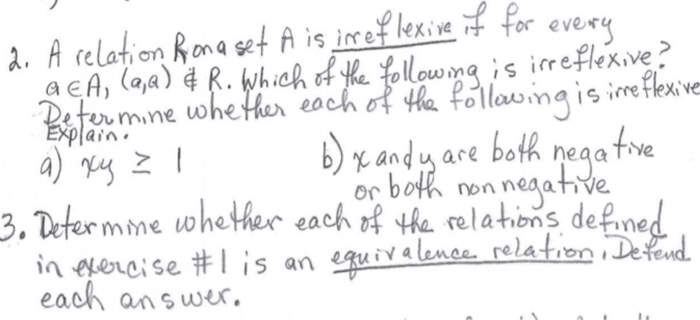 2. A relation R on a set A is irreflexive if for every
a ∈ A, (a,a) ∉ R. Which of the following is irreflexive?
Determine whether each of the following is irreflexive
Explain.
a) xy ≥ 1
b) x and y are both negative
or both nonnegative
3. Determine whether each of the relations defined
in exercise #1 is an equivalence relation. Defend
each answer.